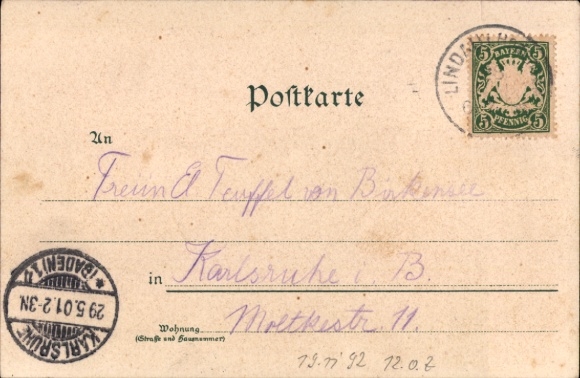 LINDAU
5 BAYERN 5
5 PFENNIG 5
Postkarte
An
Teuffel von Birkensee
in Karlsruhe i. B.
Wohnung
(Straße und Hausnummer)
Moltkestr. 11.
KARLSRUHE
29.5.01.2-3N.
* (BADEN) 1.
12.0.2